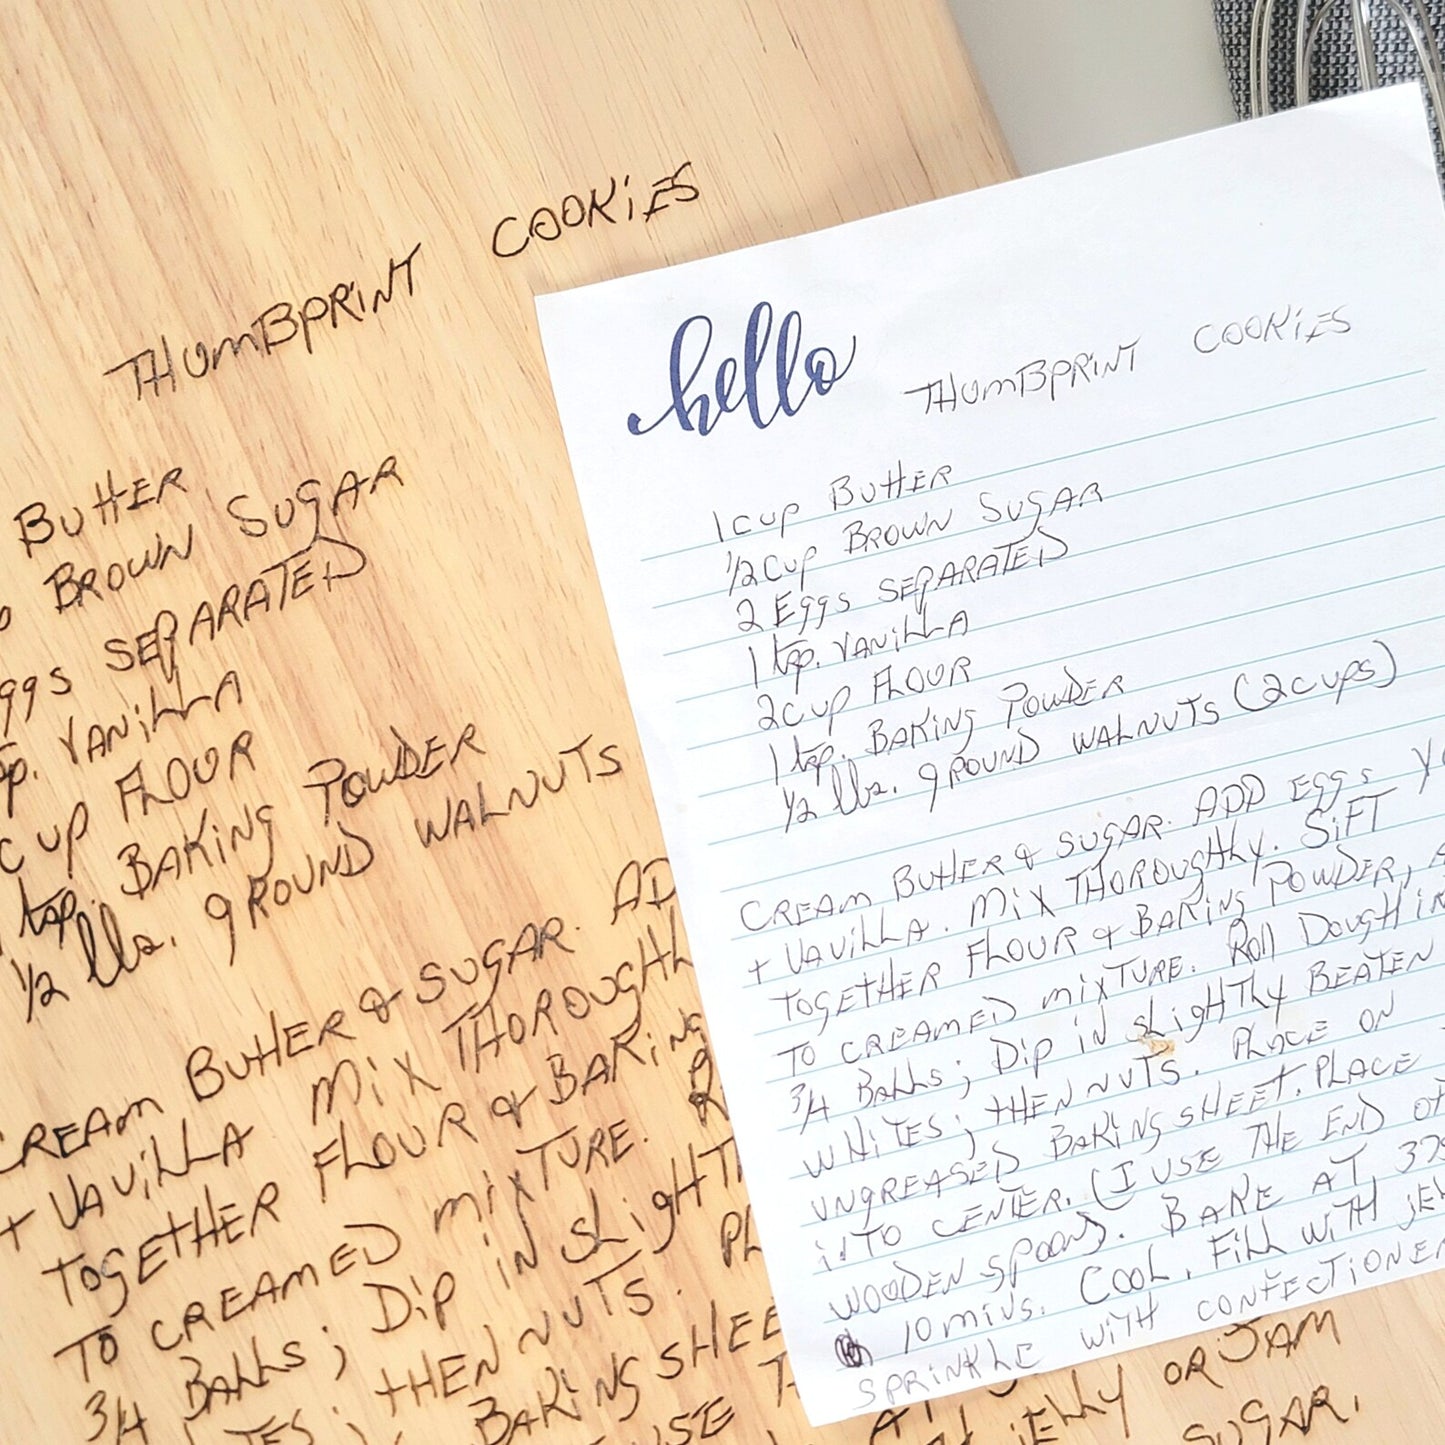 THUMBPRINT COOKIES
BUTTER
BROWN SUGAR
SEPARATED
VANILLA
CUP FLOUR
tsp. BAKING POWDER
1/2 lbs. GROUND WALNUTS
CREAM BUTTER & SUGAR. AD
+ VAVILLA MIX THOROUGHL
TOGETHER FLOUR & BAKING
TO CREAMED MIXTURE. R
3/4 BALLS; DIP IN SLIGHT
; THEN NUTS. PL
BAKING SHEE
USE T
JELLY OR JAM
SUGAR.
hello
THUMBPRINT COOKIES
1 CUP BUTTER
1/2 CUP BROWN SUGAR
2 EggS SEPARATED
1 tsp. VANILLA
2 CUP FLOUR
1 tsp. BAKING POWDER
1/2 lbs. GROUND WALNUTS (2 CUPS)
CREAM BUTTER & SUGAR. ADD EggS Y
+ VAVILLA. MIX THOROUGHLY. SiFT
TOGETHER FLOUR & BAKING POWDER, A
TO CREAMED MIXTURE. ROLL DOUGH IN
3/4 BALLS; DIP IN SLIGHTLY BEATEN
WHITES; THEN NUTS. PLACE ON
UNGREASED BAKING SHEET. PLACE
INTO CENTER. (I USE THE END OF
WOODEN SPOON). BAKE AT 375
10 MINS. COOL, FILL WITH JEL
SPRINKLE WITH CONFECTIONER